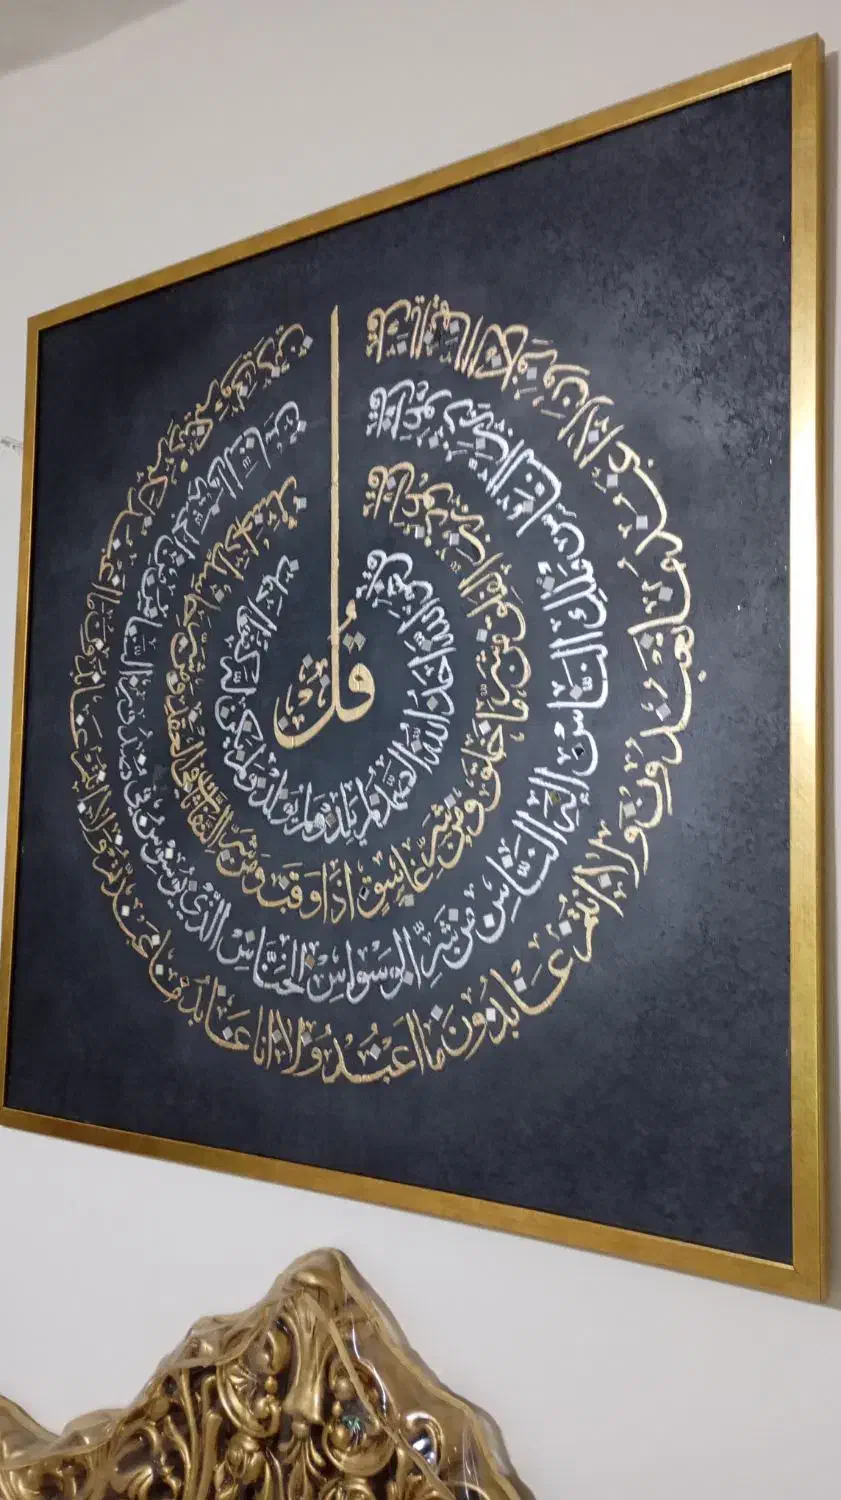 قُل
قل هو الله احد الله الصمد لم يلد ولم يولد ولم يكن له كفوا احد
قل اعوذ برب الفلق من شر ما خلق ومن شر غاسق اذا وقب ومن شر النفاثات في العقد ومن شر حاسد اذا حسد
قل اعوذ برب الناس ملك الناس اله الناس من شر الوسواس الخناس الذي يوسوس في صدور الناس من الجنة والناس
قل يا ايها الكافرون لا اعبد ما تعبدون ولا انتم عابدون ما اعبد ولا انا عابد ما عبدتم ولا انتم عابدون ما اعبد لكم دينكم ولي دين